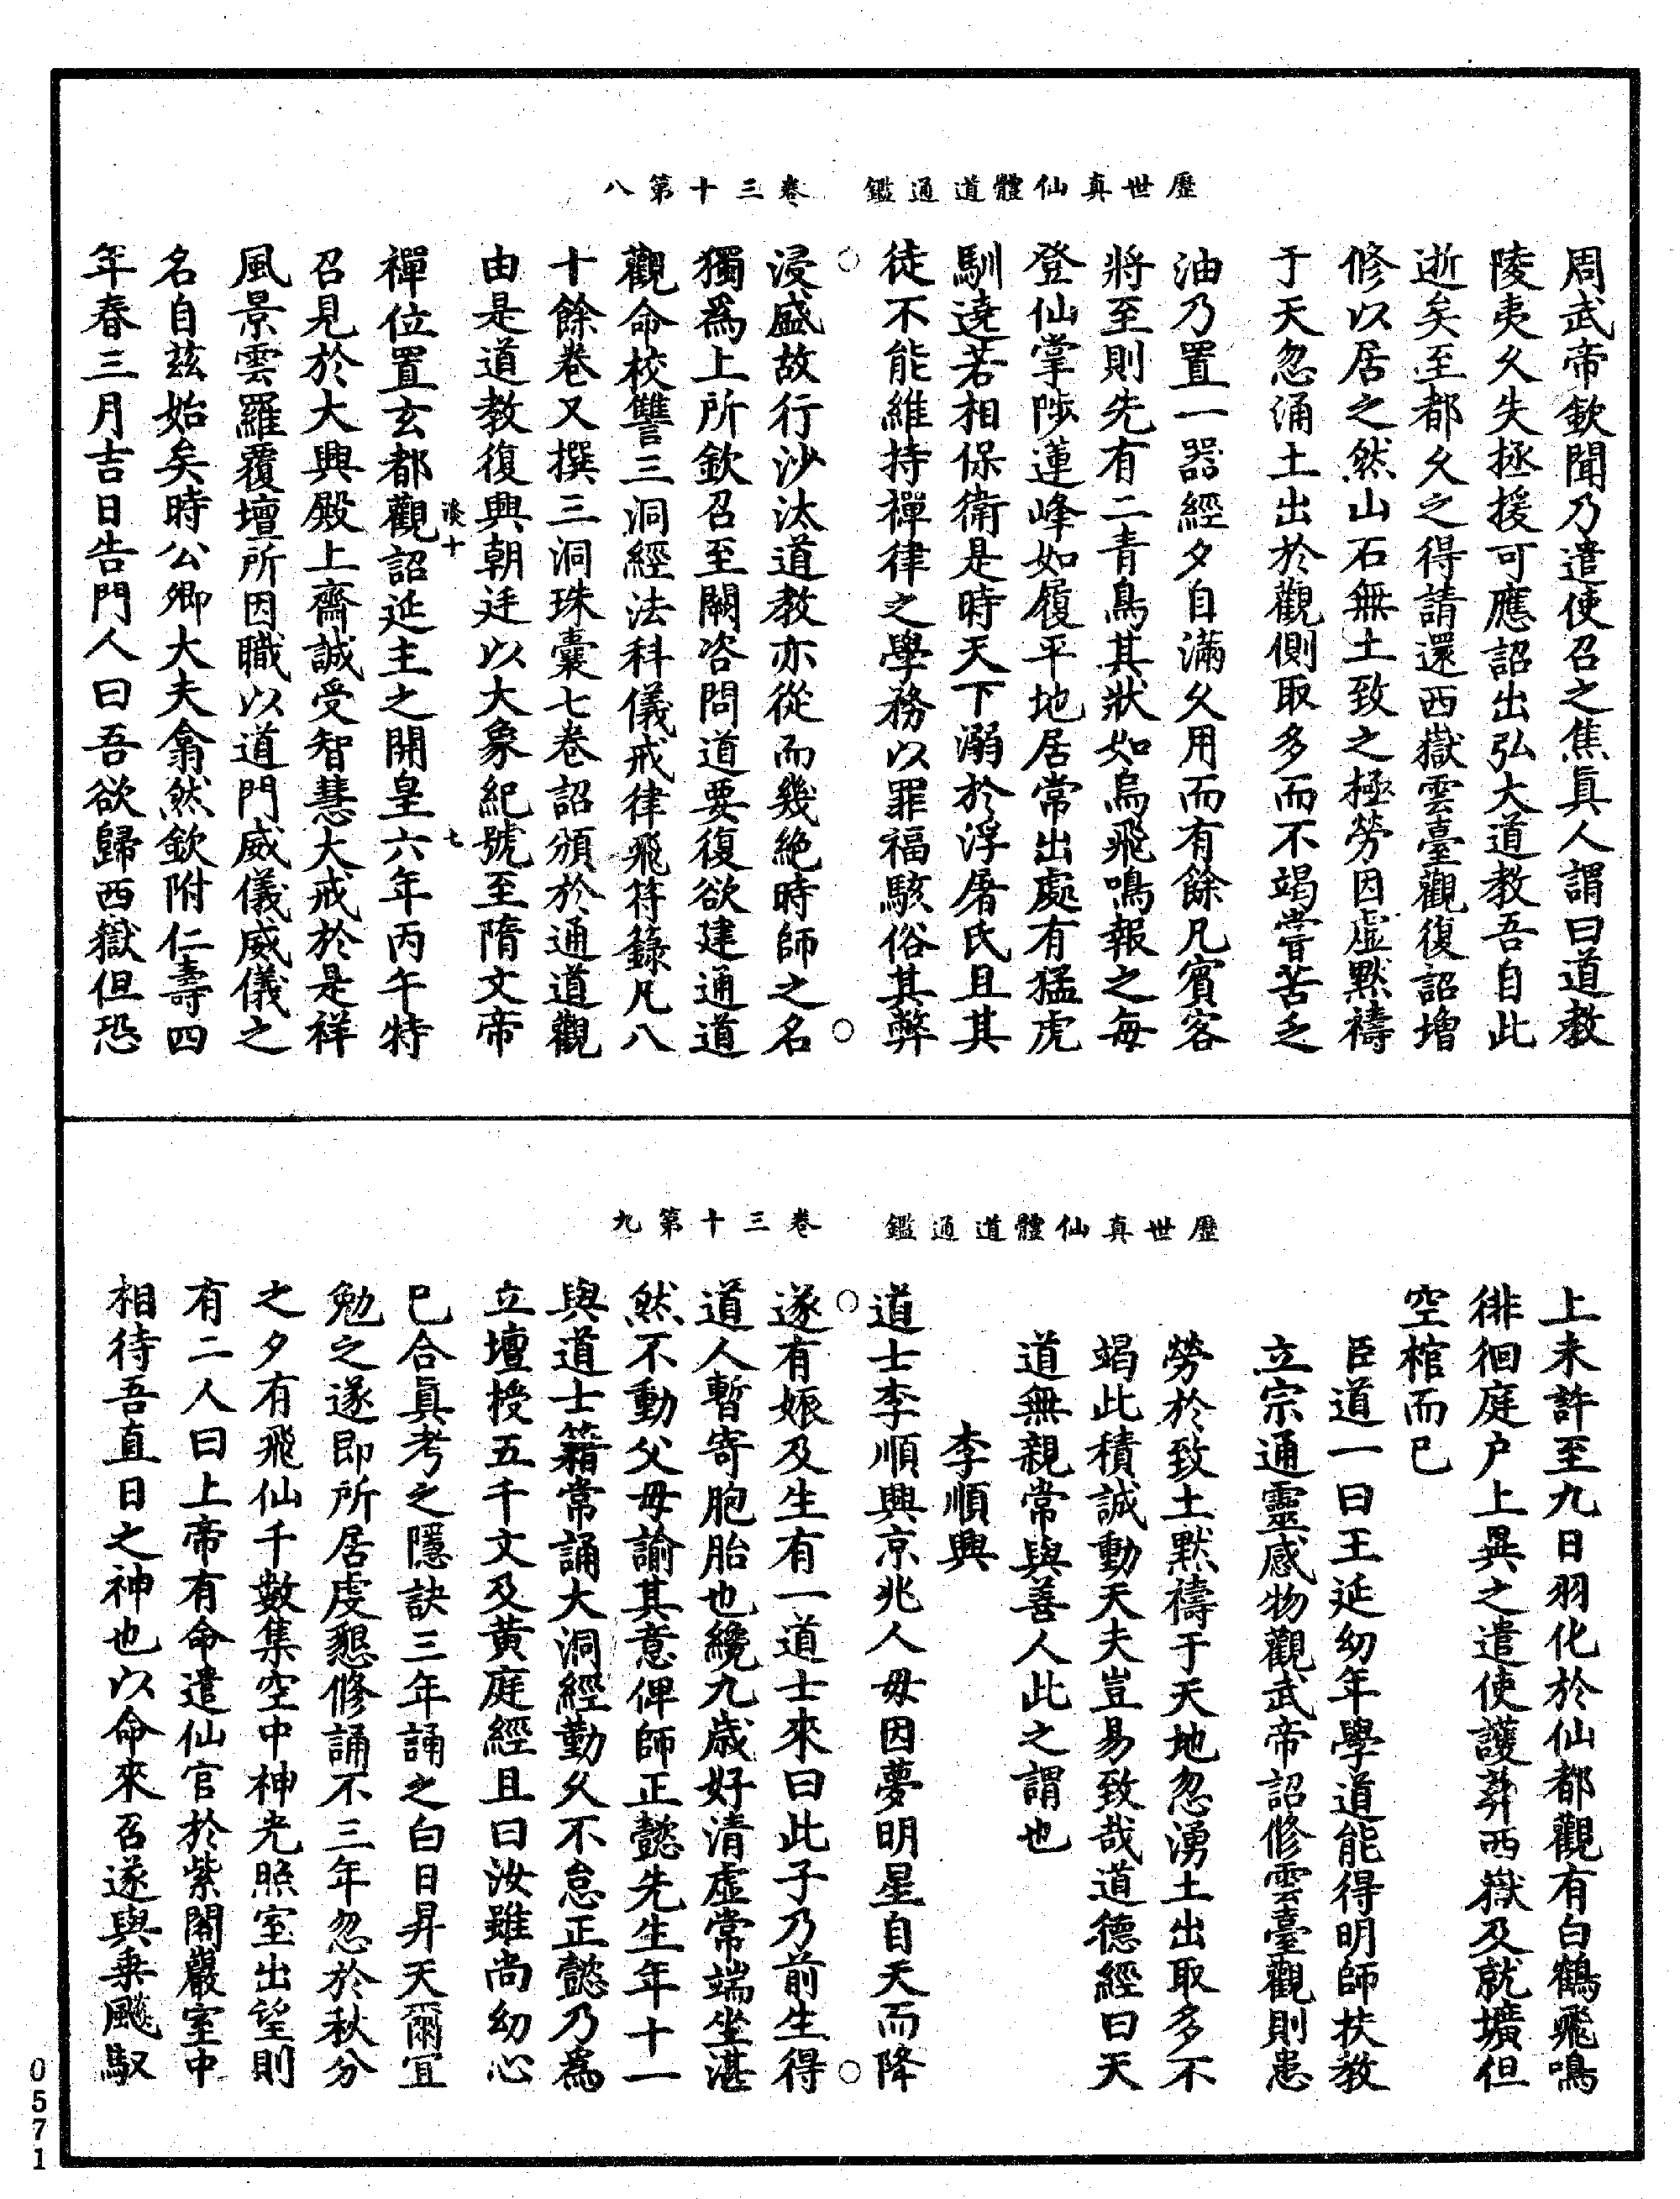 歷世真仙體道通鑑　卷三十第八
周武帝欽聞乃遣使召之焦真人謂曰道教
陵夷久失拯援可應詔出弘大道教吾自此
逝矣至都久之得請還西嶽雲臺觀復詔增
修以居之然山石無土致之極勞因虛默禱
于天忽涌土出於觀側取多而不竭嘗苦乏
油乃置一器經夕自滿久用而有餘凡賓客
將至則先有二青鳥其狀如烏飛鳴報之每
登仙掌陟蓮峰如履平地居常出處有猛虎
馴遶若相保衛是時天下溺於浮屠氏且其
徒不能維持禪律之學務以罪福駭俗其弊
浸盛故行沙汰道教亦從而幾絶時師之名
獨爲上所欽召至闕咨問道要復欲建通道
觀命校讐三洞經法科儀戒律飛符籙凡八
十餘卷又撰三洞珠囊七卷詔頒於通道觀
由是道教復興朝廷以大象紀號至隋文帝
談十　七
禪位置玄都觀詔延主之開皇六年丙午特
召見於大興殿上齋誠受智慧大戒於是祥
風景雲羅覆壇所因職以道門威儀威儀之
名自茲始矣時公卿大夫翕然欽附仁壽四
年春三月吉日告門人曰吾欲歸西嶽但恐
歷世真仙體道通鑑　卷三十第九
上未許至九日羽化於仙都觀有白鶴飛鳴
徘徊庭户上異之遣使護葬西嶽及就壙但
空棺而已
臣道一曰王延幼年學道能得明師扶教
立宗通靈感物觀武帝詔修雲臺觀則患
勞於致土默禱于天地忽湧土出取多不
竭此積誠動天夫豈易致哉道德經曰天
道無親常與善人此之謂也
李順興
道士李順興京兆人毋因夢明星自天而降
遂有娠及生有一道士來曰此子乃前生得
道人暫寄胞胎也纔九歲好清虛常端坐湛
然不動父毋諭其意俾師正懿先生年十一
與道士籍常誦大洞經勤久不怠正懿乃爲
立壇授五千文及黄庭經且曰汝雖尚幼心
已合真考之隱訣三年誦之白日昇天爾宜
勉之遂即所居虔懇修誦不三年忽於秋分
之夕有飛仙千數集空中神光照室出望則
有二人曰上帝有命遣仙官於紫閣巖室中
相待吾直日之神也以命來召遂與乘飈馭
0571